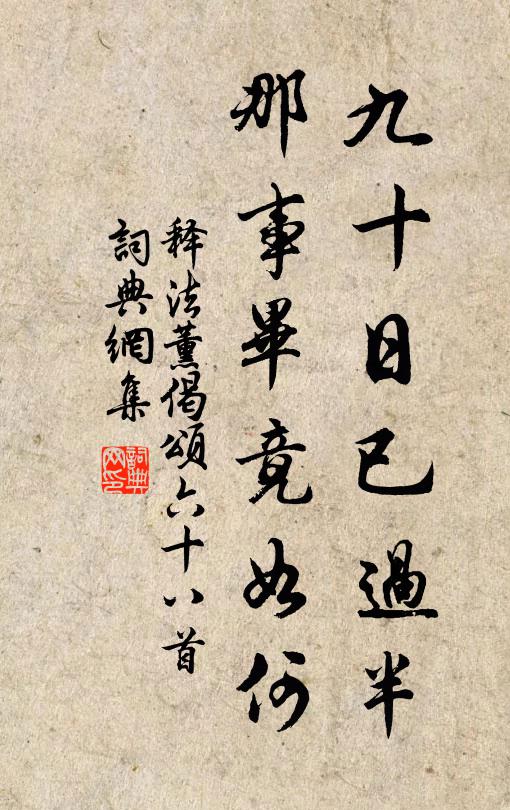 九十日已過半
那事畢竟如何
释法薰偈頌六十八首
詞典網集
詞典
网印